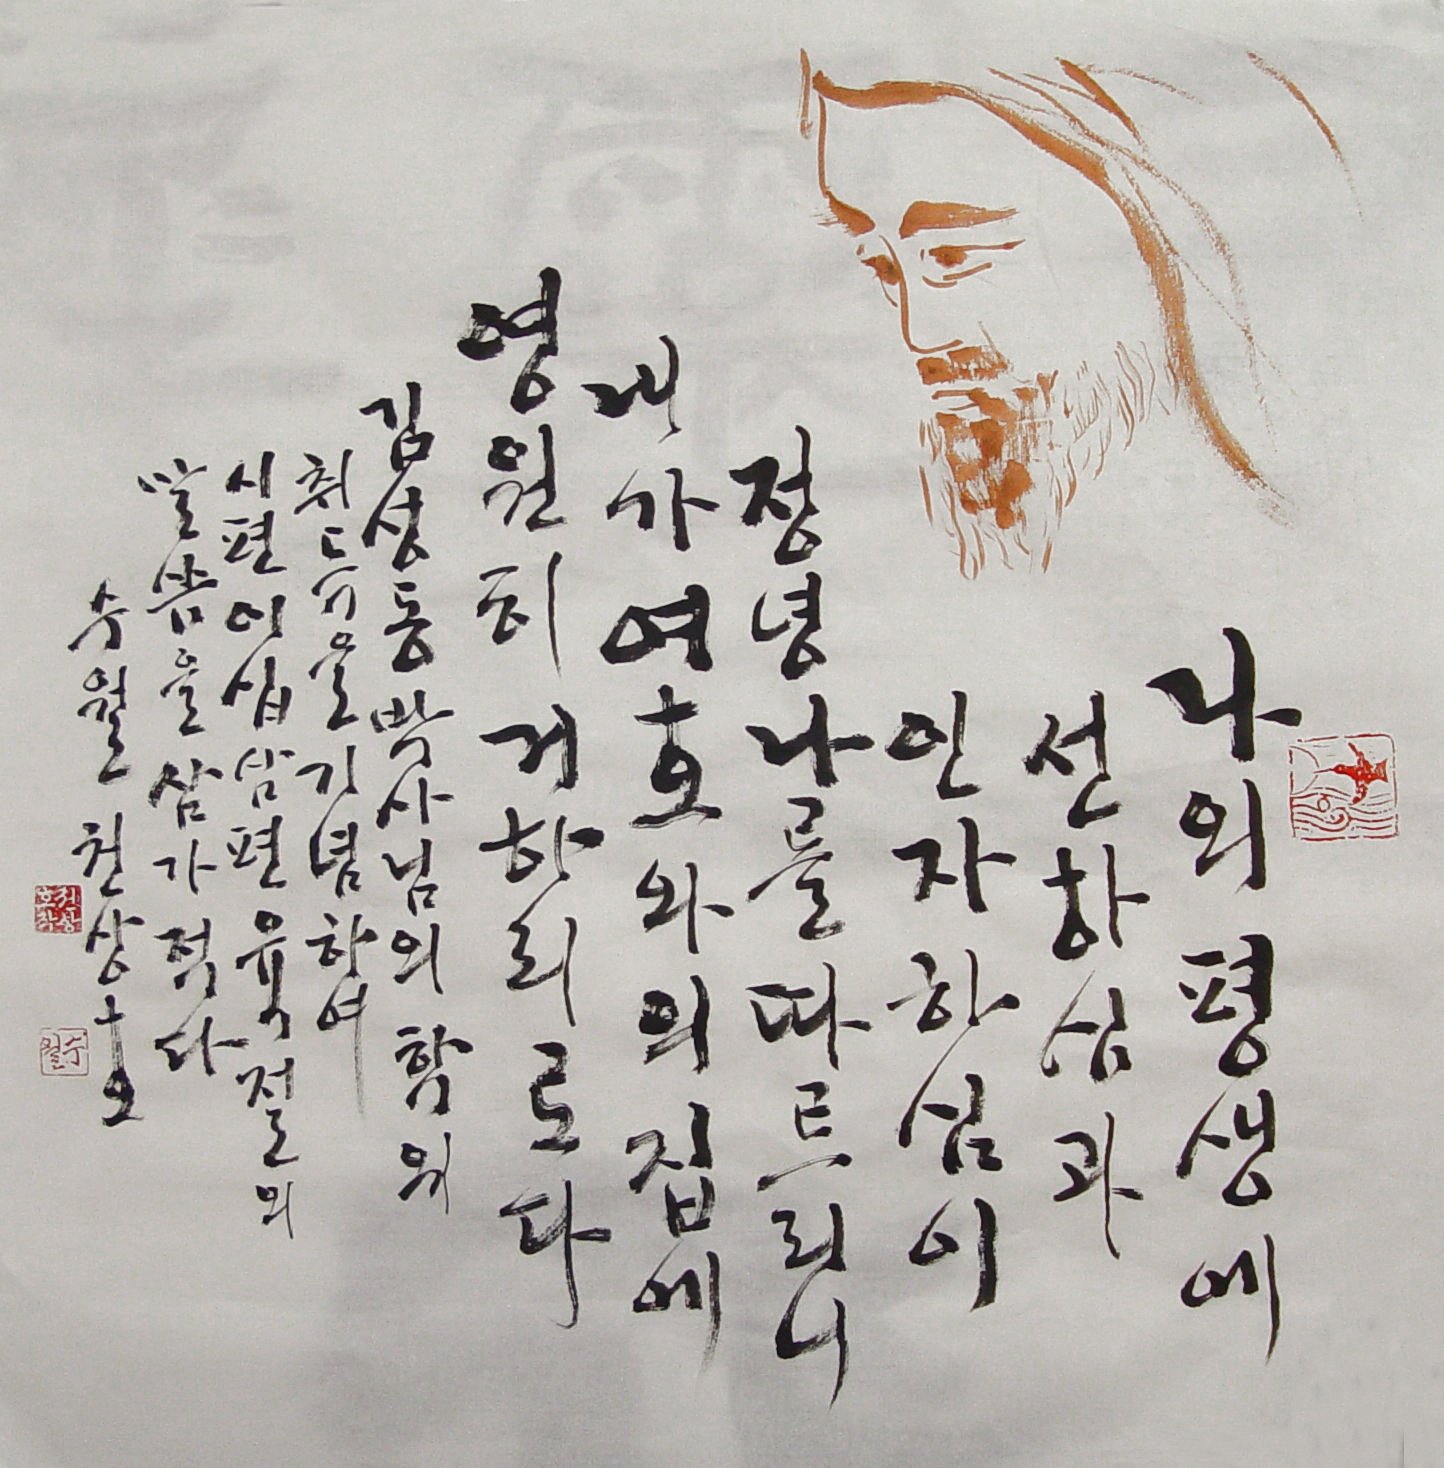 나의 평생에
선하심과
인자하심이
정녕 나를 따르리니
내가 여호와의 집에
영원히 거하리로다
김성동 박사님의 학위
취득을 기념하여
시편 이십삼편 육절의
말씀을 삼가 적다
수월 천상호
수월